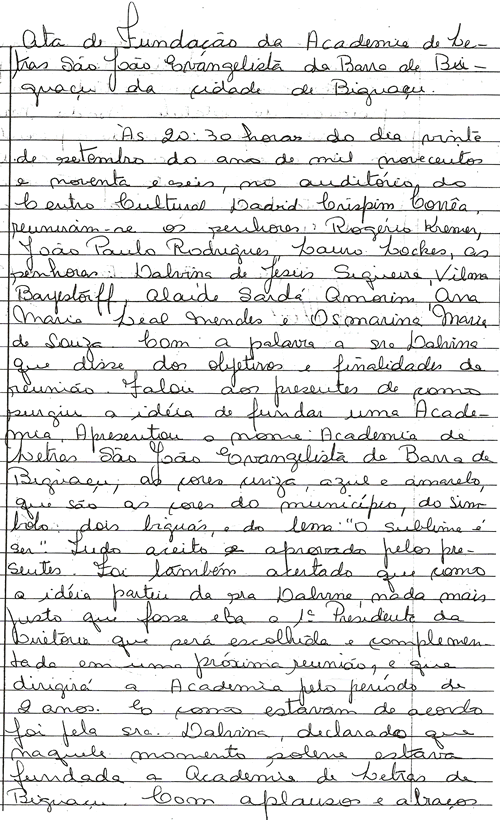 Ata de Fundação da Academia de Le-
tras São João Evangelista da Barra de Bi-
guaçu da cidade de Biguaçu.
Às 20:30 horas do dia vinte
de setembro do ano de mil novecentos
e noventa e seis, no auditório do
Centro Cultural David Crispim Corrêa,
reuniram-se os senhores: Rogério Kremer,
João Paulo Rodrigues, Lauro Lockes, as
senhoras: Dalvina de Jesus Siqueira, Vilma
Bayestorff, Alaide Sardá Amorim, Ana
Maria Leal Mendes e Osmarina Maria
de Souza. Com a palavra a sra Dalvina
que disse dos objetivos e finalidades da
reunião. Falou aos presentes de como
surgiu a idéia de fundar uma Acade-
mia. Apresentou o nome: Academia de
Letras São João Evangelista da Barra de
Biguaçu, as cores cinza, azul e amarelo,
que são as cores do município, do sím-
bolo: dois biguás, e do lema: "O sublime é
ser". Tudo aceito e aprovado pelos pre-
sentes. Foi também acertado que como
a idéia partiu da sra Dalvina, nada mais
justo que fosse ela a 1ª Presidente da
Diretoria que será escolhida e complemen-
tada em uma próxima reunião, e que
dirigirá a Academia pelo período de
2 anos. E como estavam de acordo
foi pela sra. Dalvina, declarado que
naquele momento solene estava
fundada a Academia de Letras de
Biguaçu. Com aplausos e abraços